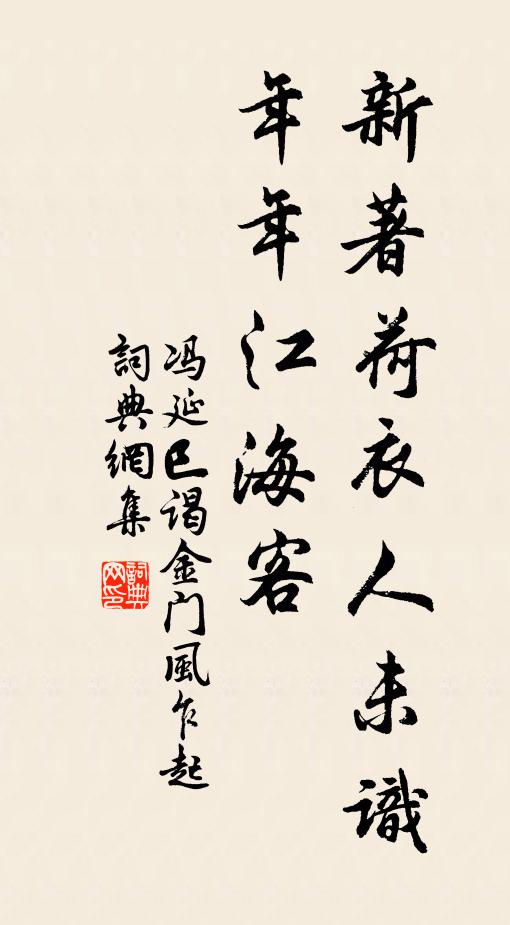 新著荷衣人未識
年年江海客
冯延巳谒金門風乍起
詞典網集
詞典
网印